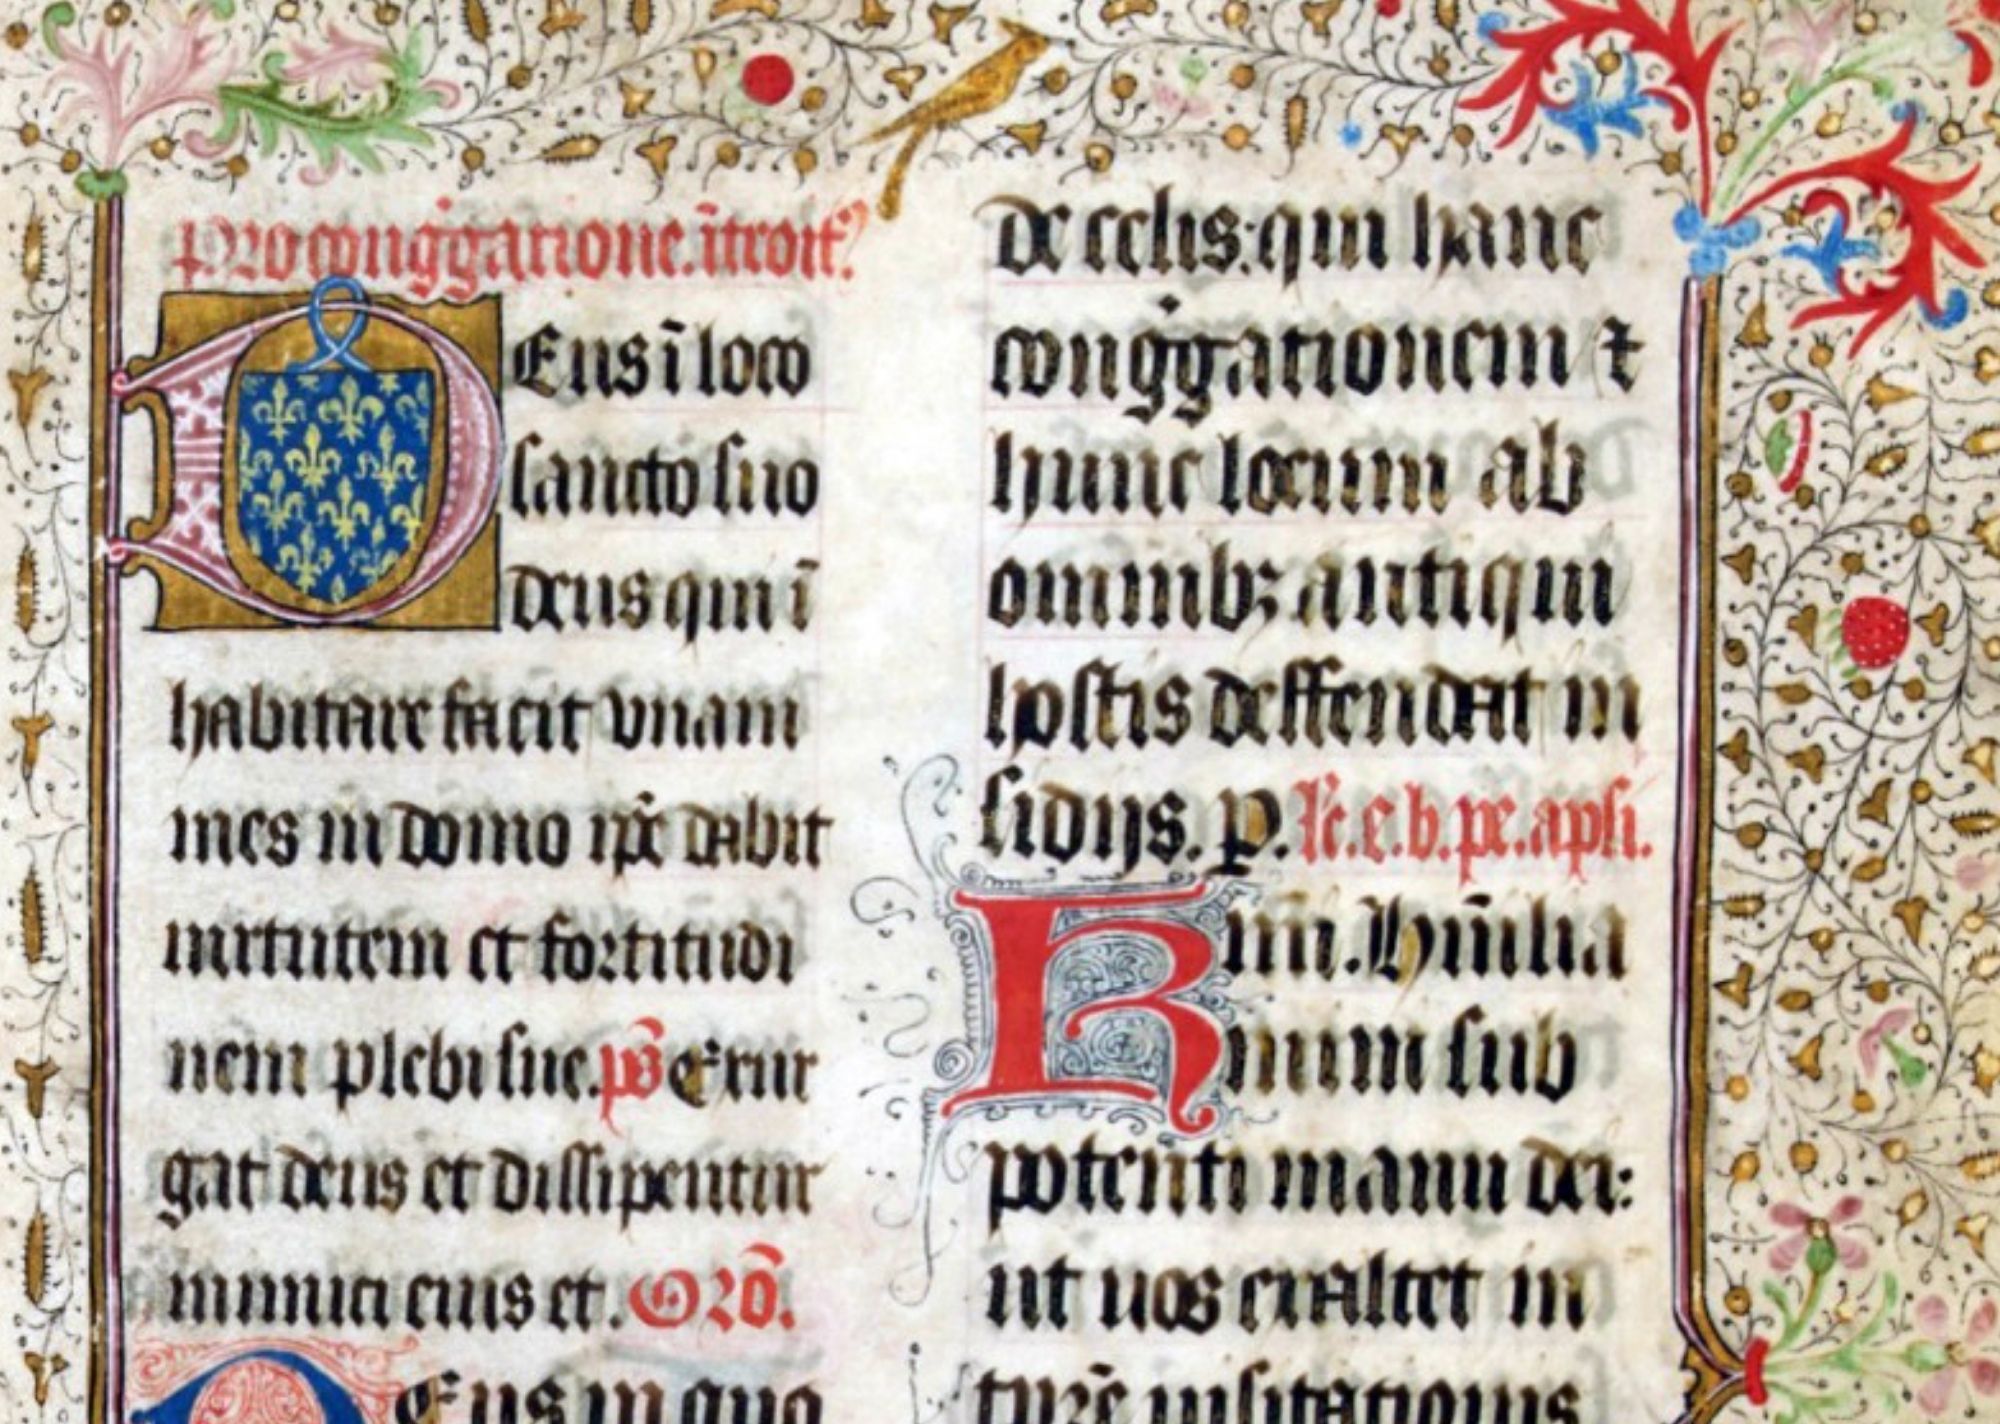 pro congġgatione. ītroit᷒
DEus ī loco
sancto suo
deus qui ī
habitare facit vnani
mes in domo ip̄e dabit
uirtutem et fortitudi
nem plebi sue. ps̄ Exur
gat deus et dissipentur
inimici eius et. Orō.
DEus in quo
de celis: qui hanc
congġgationem ⁊
hunc locum ab
omnibꝫ antiqui
hostis deffendat in
sidijs. p. lc̄. e. b. pe. apli.
Krm̄. Hūilia
mini sub
potenti manu dei:
ut uos exaltet in
tp̄re uisitationis